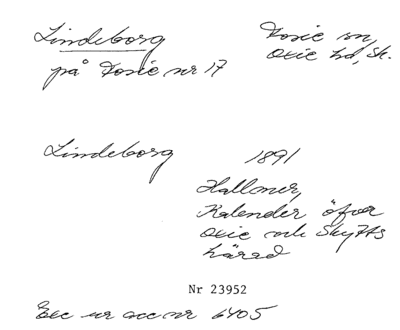 Lindeborg
på Fosie nr 17
Fosie sn,
Oxie hd, Sk.
Lindeborg 1891
Halloner,
Kalender öfver
Oxie och Skytts
härad
Nr 23952
Exc ur acc nr 6405